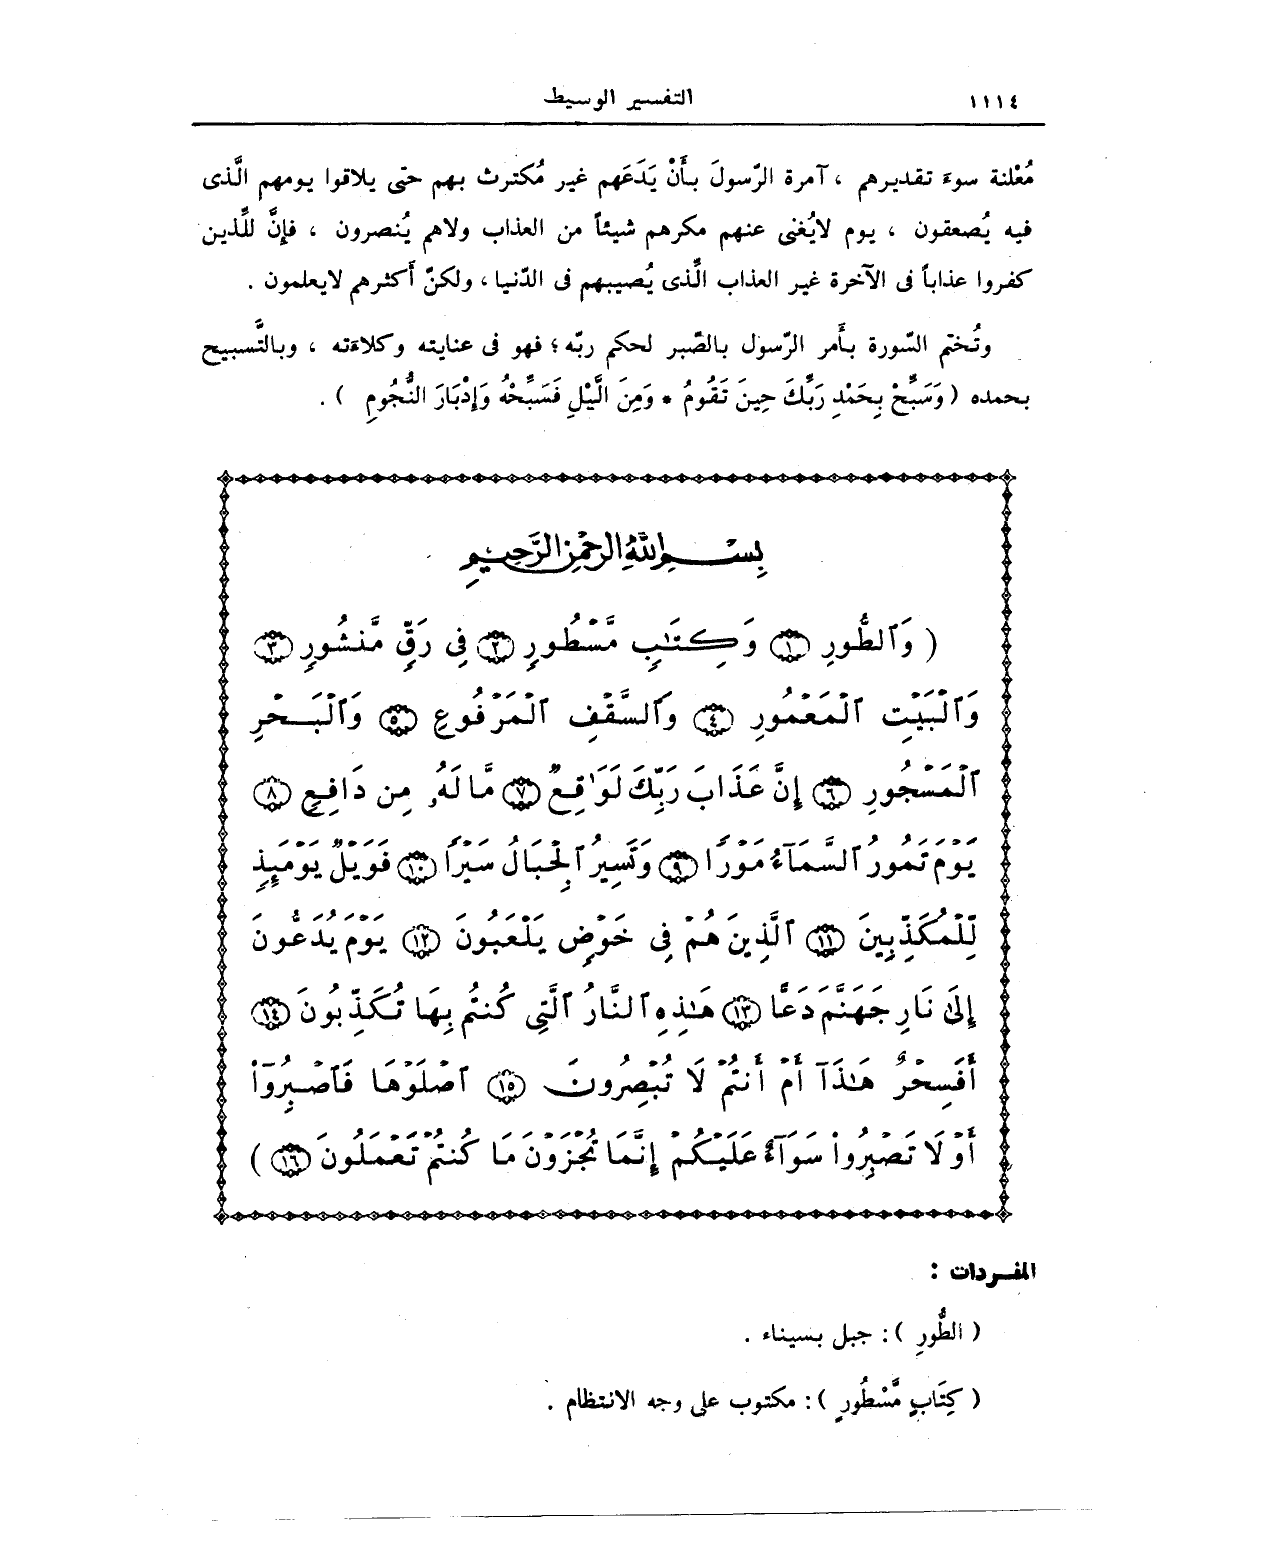 ١١١٤
التفسير الوسيط
مُعْلنة سوءَ تقديرهم ، آمرة الرّسولَ بأَنْ يَدَعَهم غير مُكترث بهم حتى يلاقوا يومهم الَّذى
فيه يُصعقون ، يوم لايُغنى عنهم مكرهم شيئاً من العذاب ولاهم يُنصرون ، فإنَّ للَّذين
كفروا عذاباً فى الآخرة غير العذاب الَّذى يُصيبهم فى الدّنيا ، ولكنّ أكثرهم لايعلمون .
وتُختم السّورة بأَمر الرّسول بالصّبر لحكم ربّه ؛ فهو فى عنايته وكلاءَته ، وبالتَّسبيح
بحمده ( وَسَبِّحْ بِحَمْدِ رَبِّكَ حِينَ تَقُومُ * وَمِنَ الَّيْلِ فَسَبِّحْهُ وَإِدْبَارَ النُّجُومِ ) .
بِسْمِ اللَّهِ الرَّحْمَٰنِ الرَّحِيمِ
( وَٱلطُّورِ ١ وَكِتَٰبٍ مَّسْطُورٍ ٢ فِى رَقٍّ مَّنشُورٍ ٣
وَٱلْبَيْتِ ٱلْمَعْمُورِ ٤ وَٱلسَّقْفِ ٱلْمَرْفُوعِ ٥ وَٱلْبَحْرِ
ٱلْمَسْجُورِ ٦ إِنَّ عَذَابَ رَبِّكَ لَوَٰقِعٌ ٧ مَّا لَهُۥ مِن دَافِعٍ ٨
يَوْمَ تَمُورُ ٱلسَّمَآءُ مَوْرًا ٩ وَتَسِيرُ ٱلْجِبَالُ سَيْرًا ١٠ فَوَيْلٌ يَوْمَئِذٍ
لِّلْمُكَذِّبِينَ ١١ ٱلَّذِينَ هُمْ فِى خَوْضٍ يَلْعَبُونَ ١٢ يَوْمَ يُدَعُّونَ
إِلَىٰ نَارِ جَهَنَّمَ دَعًّا ١٣ هَٰذِهِ ٱلنَّارُ ٱلَّتِى كُنتُم بِهَا تُكَذِّبُونَ ١٤
أَفَسِحْرٌ هَٰذَآ أَمْ أَنتُمْ لَا تُبْصِرُونَ ١٥ ٱصْلَوْهَا فَٱصْبِرُوٓا۟
أَوْ لَا تَصْبِرُوا۟ سَوَآءٌ عَلَيْكُمْ إِنَّمَا تُجْزَوْنَ مَا كُنتُمْ تَعْمَلُونَ ١٦ )
المفردات :
( الطُّورِ ) : جبل بسيناء .
( كِتَابٍ مَّسْطُورٍ ) : مكتوب على وجه الانتظام .